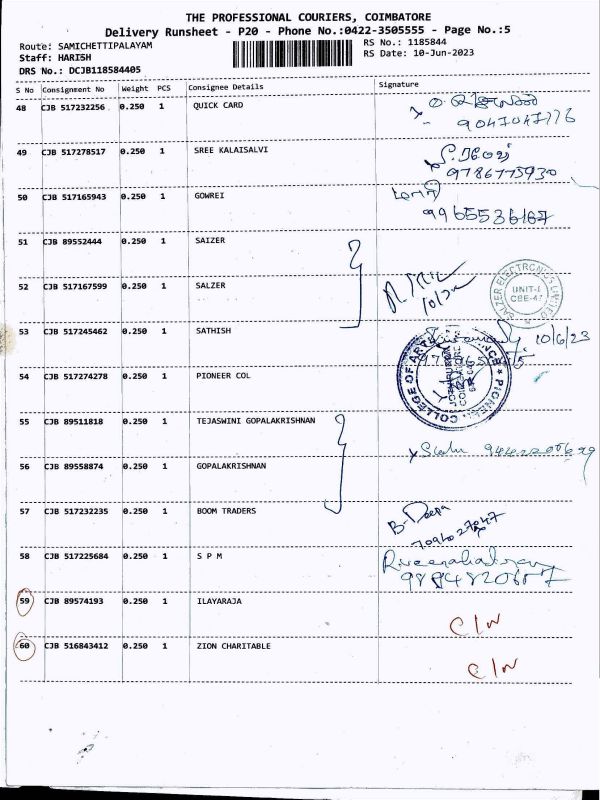 THE PROFESSIONAL COURIERS, COIMBATORE
Delivery Runsheet - P20 - Phone No.:0422-3505555 - Page No.:5
Route: SAMICHETTIPALAYAM
Staff: HARISH
DRS No.: DCJB118584405
RS No.: 1185844
RS Date: 10-Jun-2023
S No Consignment No Weight PCS Consignee Details Signature
48 CJB 517232256 0.250 1 QUICK CARD
9047047776
49 CJB 517278517 0.250 1 SREE KALAISALVI
9786775930
50 CJB 517165943 0.250 1 GOWREI
9965536167
51 CJB 89552444 0.250 1 SAIZER
52 CJB 517167599 0.250 1 SALZER
SALZER ELECTRONICS LIMITED
UNIT-I
CBE-47
53 CJB 517245462 0.250 1 SATHISH
10/6/23
54 CJB 517274278 0.250 1 PIONEER COL
55 CJB 89511818 0.250 1 TEJASWINI GOPALAKRISHNAN
56 CJB 89558874 0.250 1 GOPALAKRISHNAN
57 CJB 517232235 0.250 1 BOOM TRADERS
B-Deepa
7094027047
58 CJB 517225684 0.250 1 S P M
9894820607
59 CJB 89574193 0.250 1 ILAYARAJA
C/N
60 CJB 516843412 0.250 1 ZION CHARITABLE
C/N